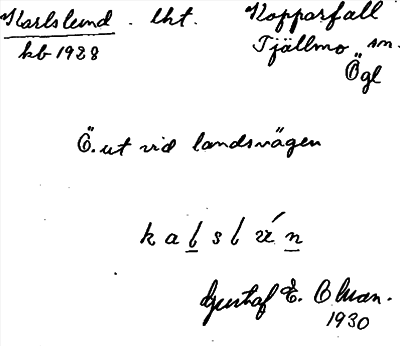 Karlslund. lht. Kopparfall
kb 1928 Tjällmo sn.
Ögl
Ö. ut vid landsvägen
Gustaf E. Oman.
1930